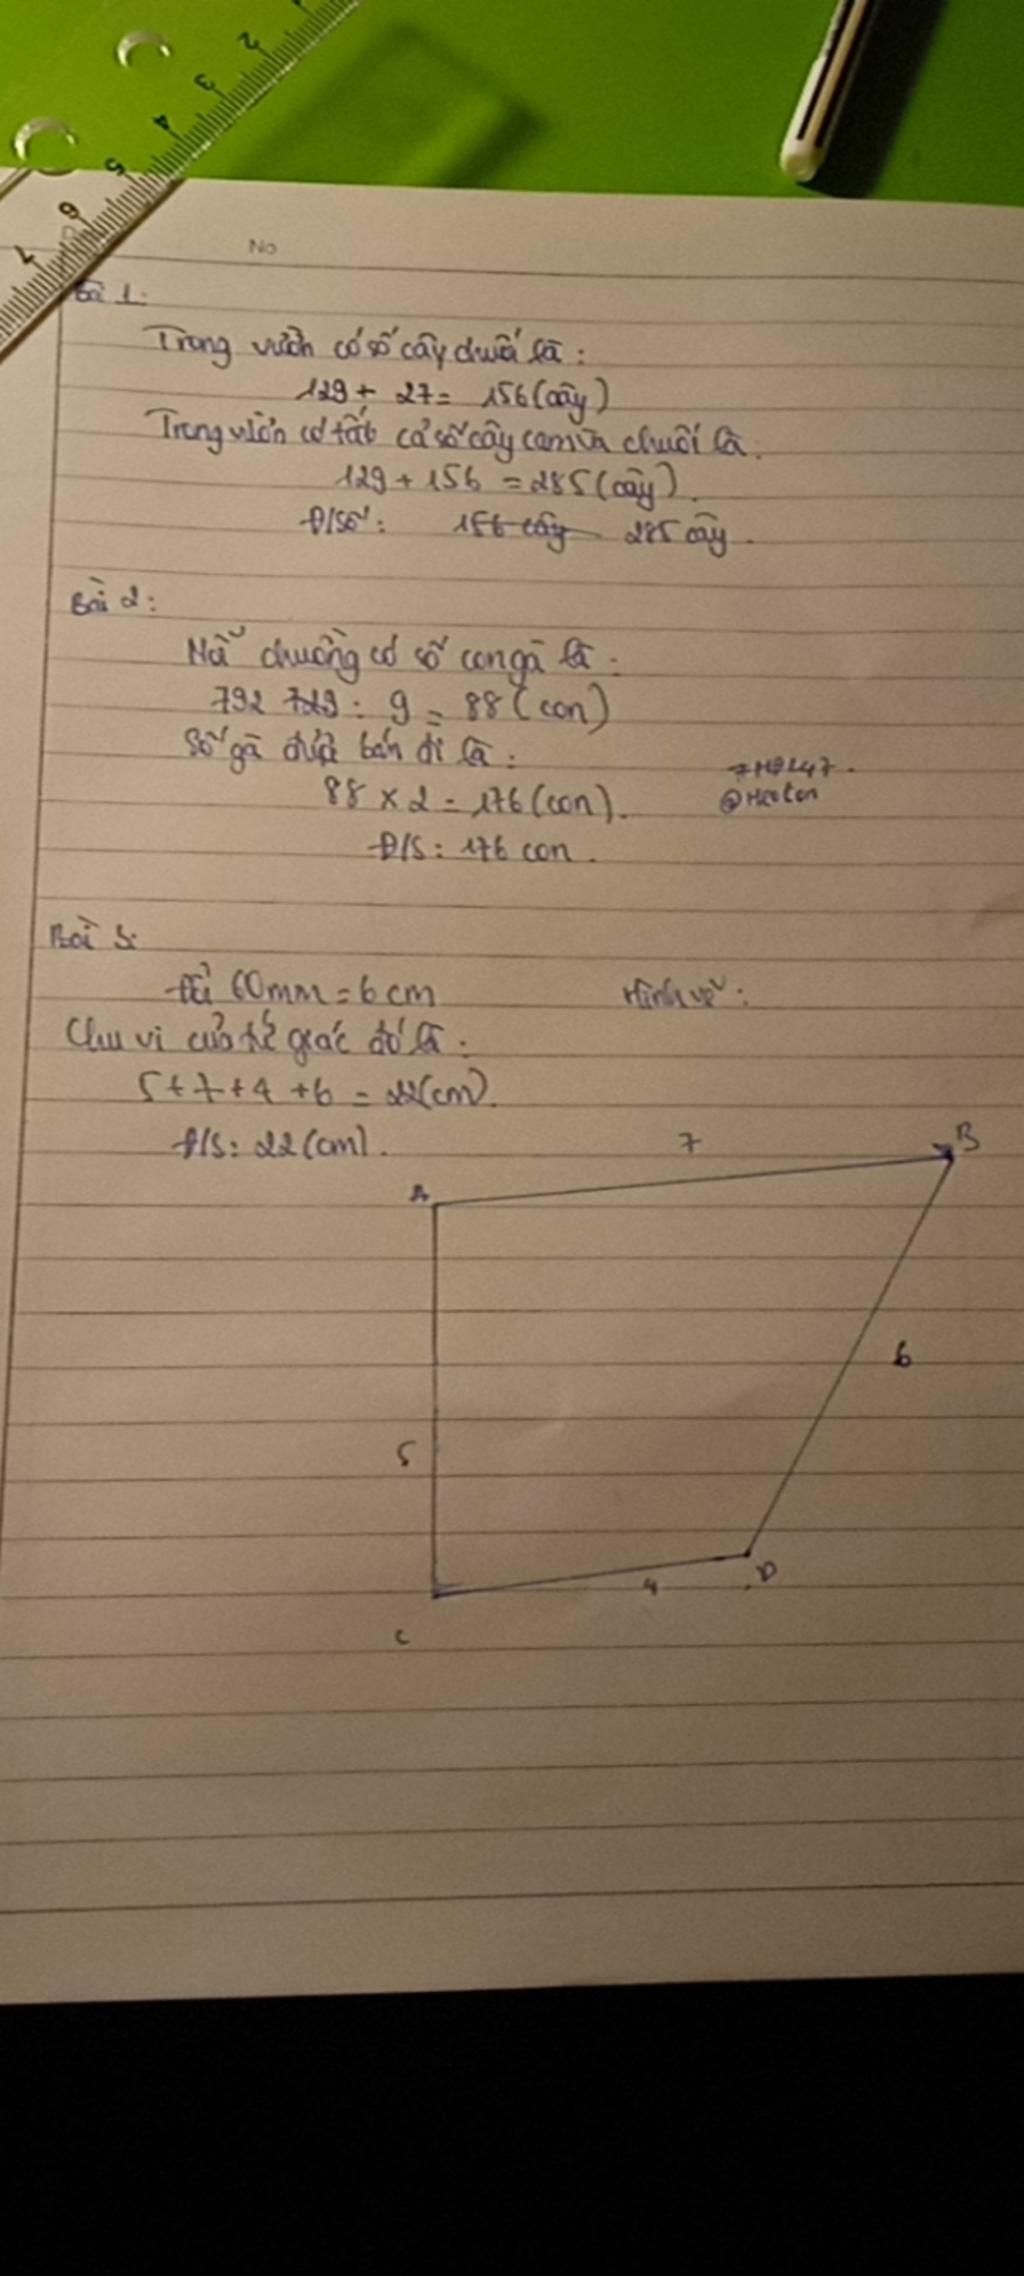 2
3
4
5
6
7
No
Bài 1:
Trong vườn có số cây chuối là:
129 + 27 = 156 (cây)
Trong vườn có tất cả số cây cam và chuối là:
129 + 156 = 285 (cây).
Đ/Số: 156 cây 285 cây.
Bài 2:
Mỗi chuồng có số con gà là:
792 729 : 9 = 88 (con)
Số gà được bán đi là:
88 × 2 = 176 (con).
Đ/S: 176 con.
Bài 3:
Đổi 60mm = 6 cm
Hình vẽ:
Chu vi của tứ giác đó là:
5 + 7 + 4 + 6 = 22 (cm).
Đ/S: 22 (cm).
7
B
A
6
5
4
D
C